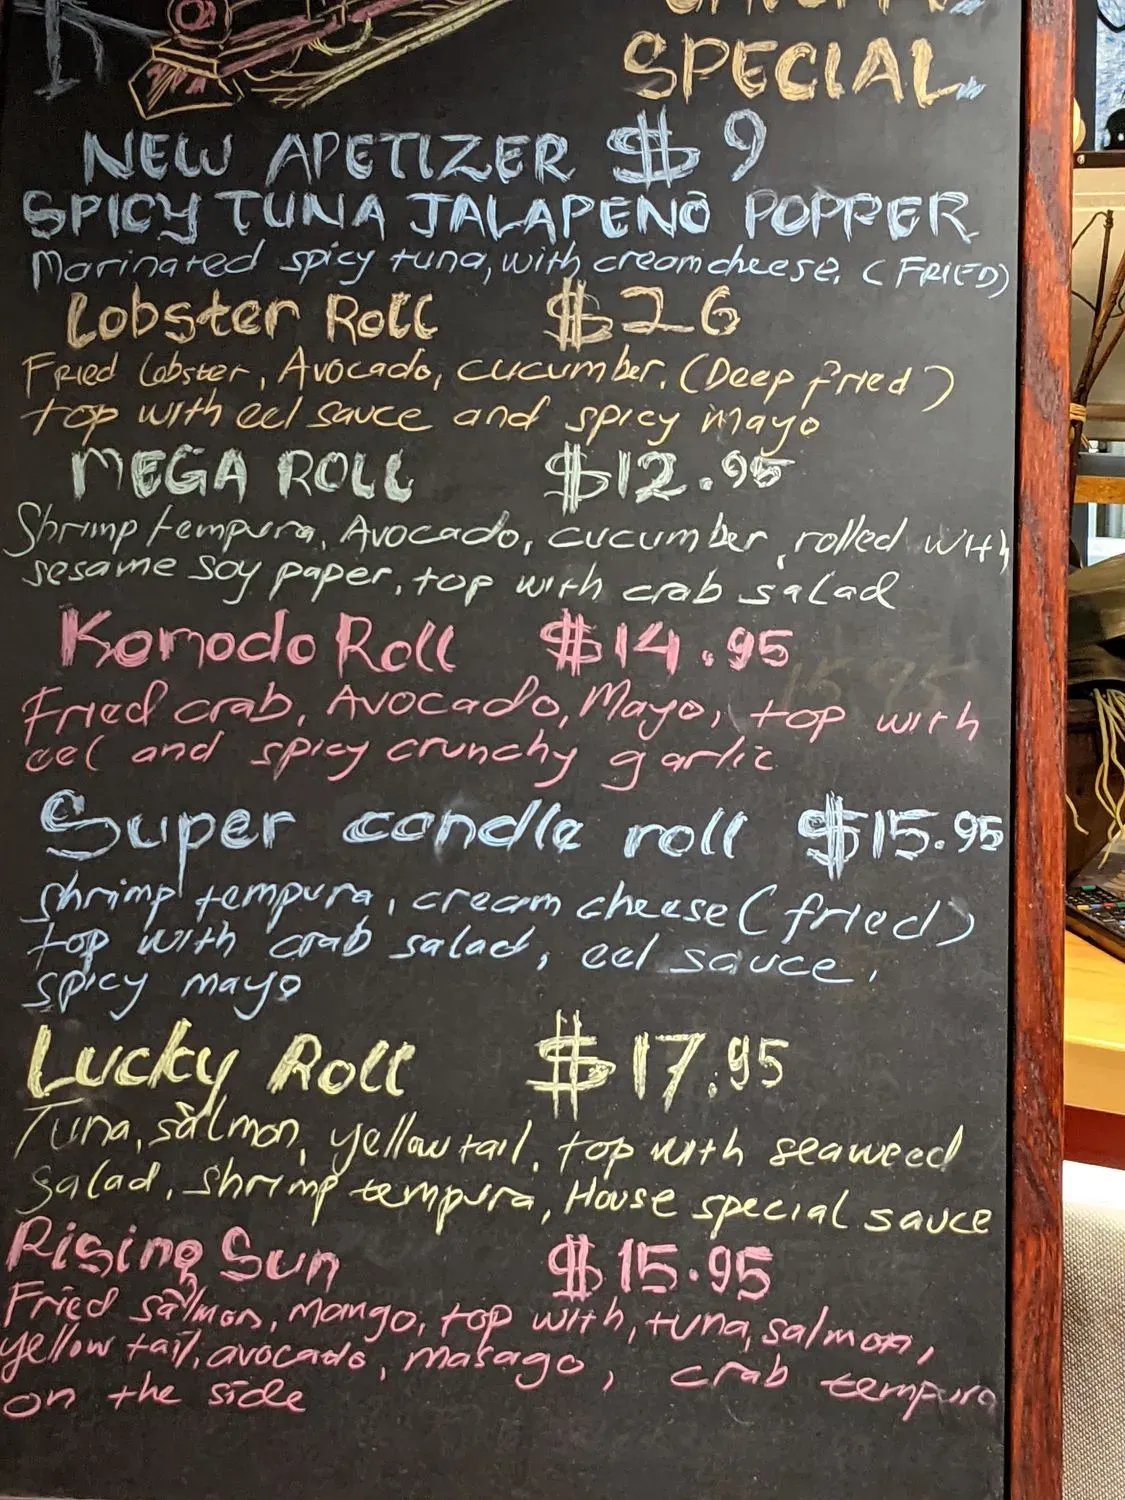 SPECIAL
NEW APETIZER $9
SPICY TUNA JALAPENO POPPER
Marinated spicy tuna, with cream cheese. (FRIED)
Lobster Roll $26
Fried lobster, Avocado, cucumber. (Deep fried)
top with eel sauce and spicy mayo
MEGA ROLL $12.95
Shrimp tempura, Avocado, cucumber, rolled with
sesame soy paper, top with crab salad
Komodo Roll $14.95
Fried crab, Avocado, Mayo, top with
eel and spicy crunchy garlic
Super candle roll $15.95
shrimp tempura, cream cheese (fried)
top with crab salad, eel sauce,
spicy mayo
Lucky Roll $17.95
Tuna, salmon, yellow tail, top with seaweed
salad, shrimp tempura, House special sauce
Rising Sun $15.95
Fried salmon, mango, top with, tuna, salmon,
yellow tail, avocado, masago, crab tempura
on the side